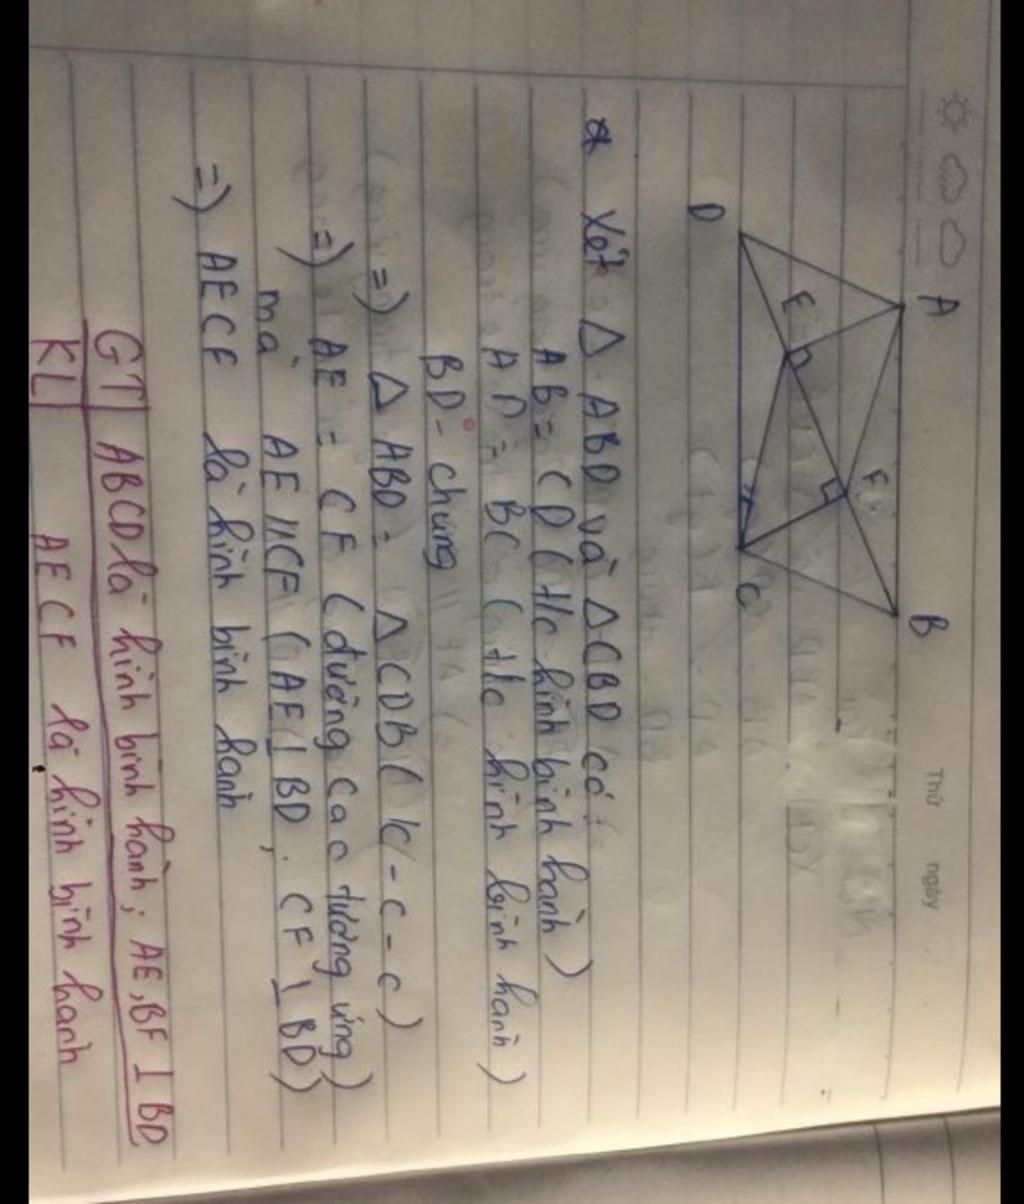 Thứ
ngày
A
B
E
F
D
C
a Xét Δ ABD và Δ CBD có:
AB = CD (t/c hình bình hành)
AD = BC (t/c hình bình hành)
BD - chung
=> Δ ABD = Δ CDB (c-c-c)
=> AE = CF (đường cao tương ứng)
mà AE // CF (AE ⊥ BD; CF ⊥ BD)
=> AECF là hình bình hành
GT | ABCD là hình bình hành; AE, BF ⊥ BD
KL | AECF là hình bình hành